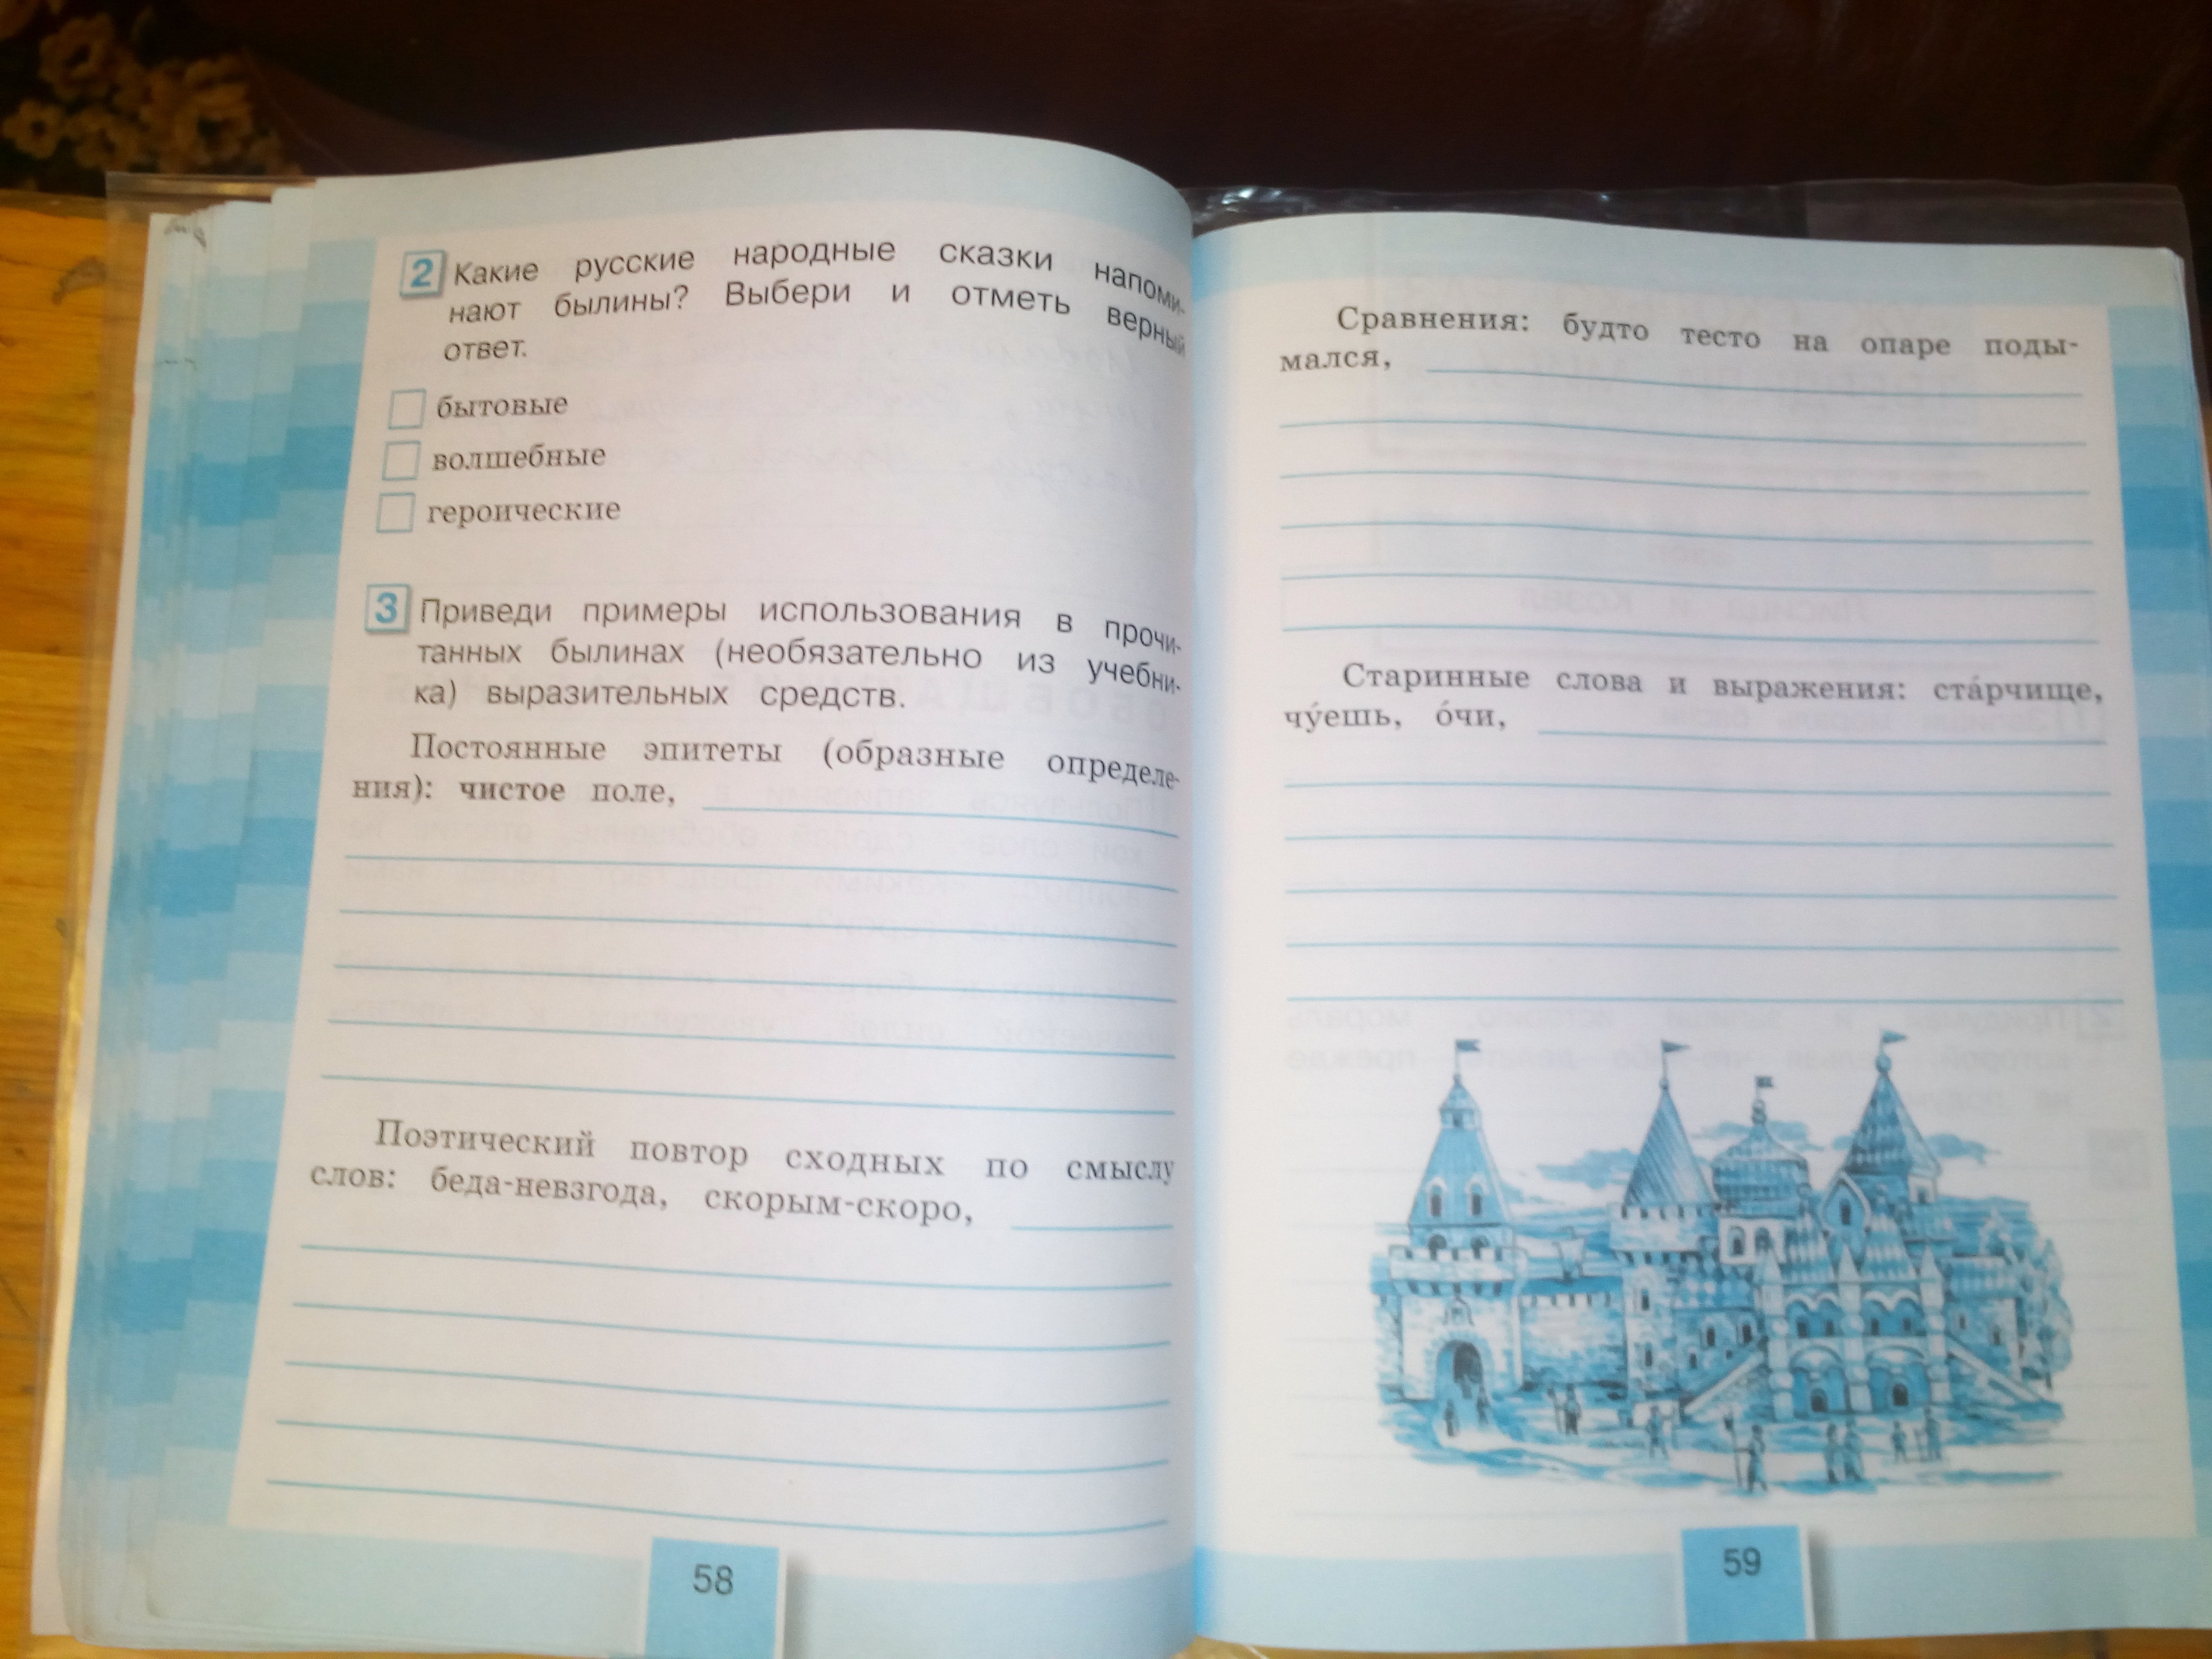 2 Какие русские народные сказки напоми-
нают былины? Выбери и отметь верный
ответ.
бытовые
волшебные
героические
3 Приведи примеры использования в прочи-
танных былинах (необязательно из учебни-
ка) выразительных средств.
Постоянные эпитеты (образные определе-
ния): чистое поле,
Поэтический повтор сходных по смыслу
слов: беда-невзгода, скорым-скоро,
58
Сравнения: будто тесто на опаре поды-
мался,
Старинные слова и выражения: ста́рчище,
чу́ешь, о́чи,
59